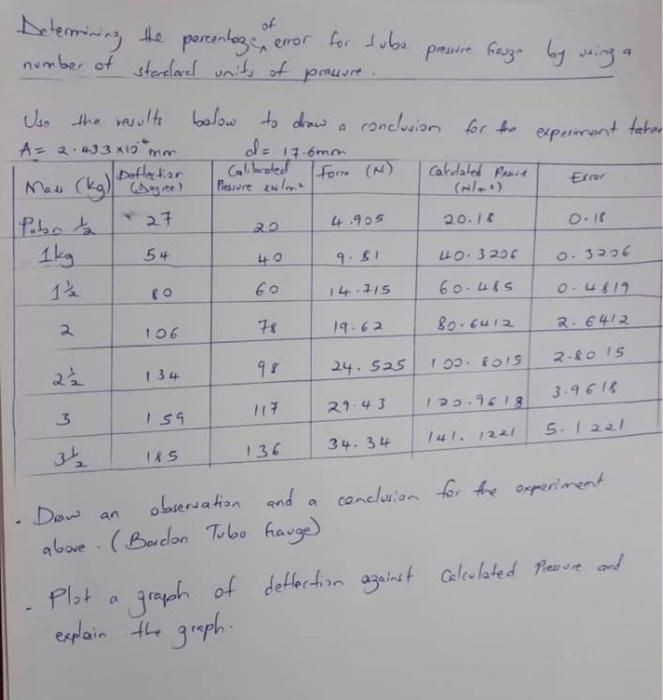 of
Determining the percentage ^ error for tube pressure Gauge by using a
number of standard units of pressure.
Use the results below to draw a conclusion for the experiment taken
A = 2.433 x10⁻⁴ mm d = 17.6mm
Mass (kg) Deflection (Degree) Calibrated Pressure KN/m² Force (N) Calculated Pressure (N/m²) Error
½ 27 20 4.905 20.18 0.18
1kg 54 40 9.81 40.3206 0.3206
1½ 80 60 14.715 60.485 0.4819
2 106 78 19.62 80.6412 2.6412
2½ 134 98 24.525 100.8015 2.8015
3 159 117 29.43 120.9618 3.9618
3½ 185 136 34.34 141.1221 5.1221
- Draw an observation and a conclusion for the experiment
above. (Bordon Tube Gauge)
- Plot a graph of deflection against Calculated Pressure and
explain the graph.